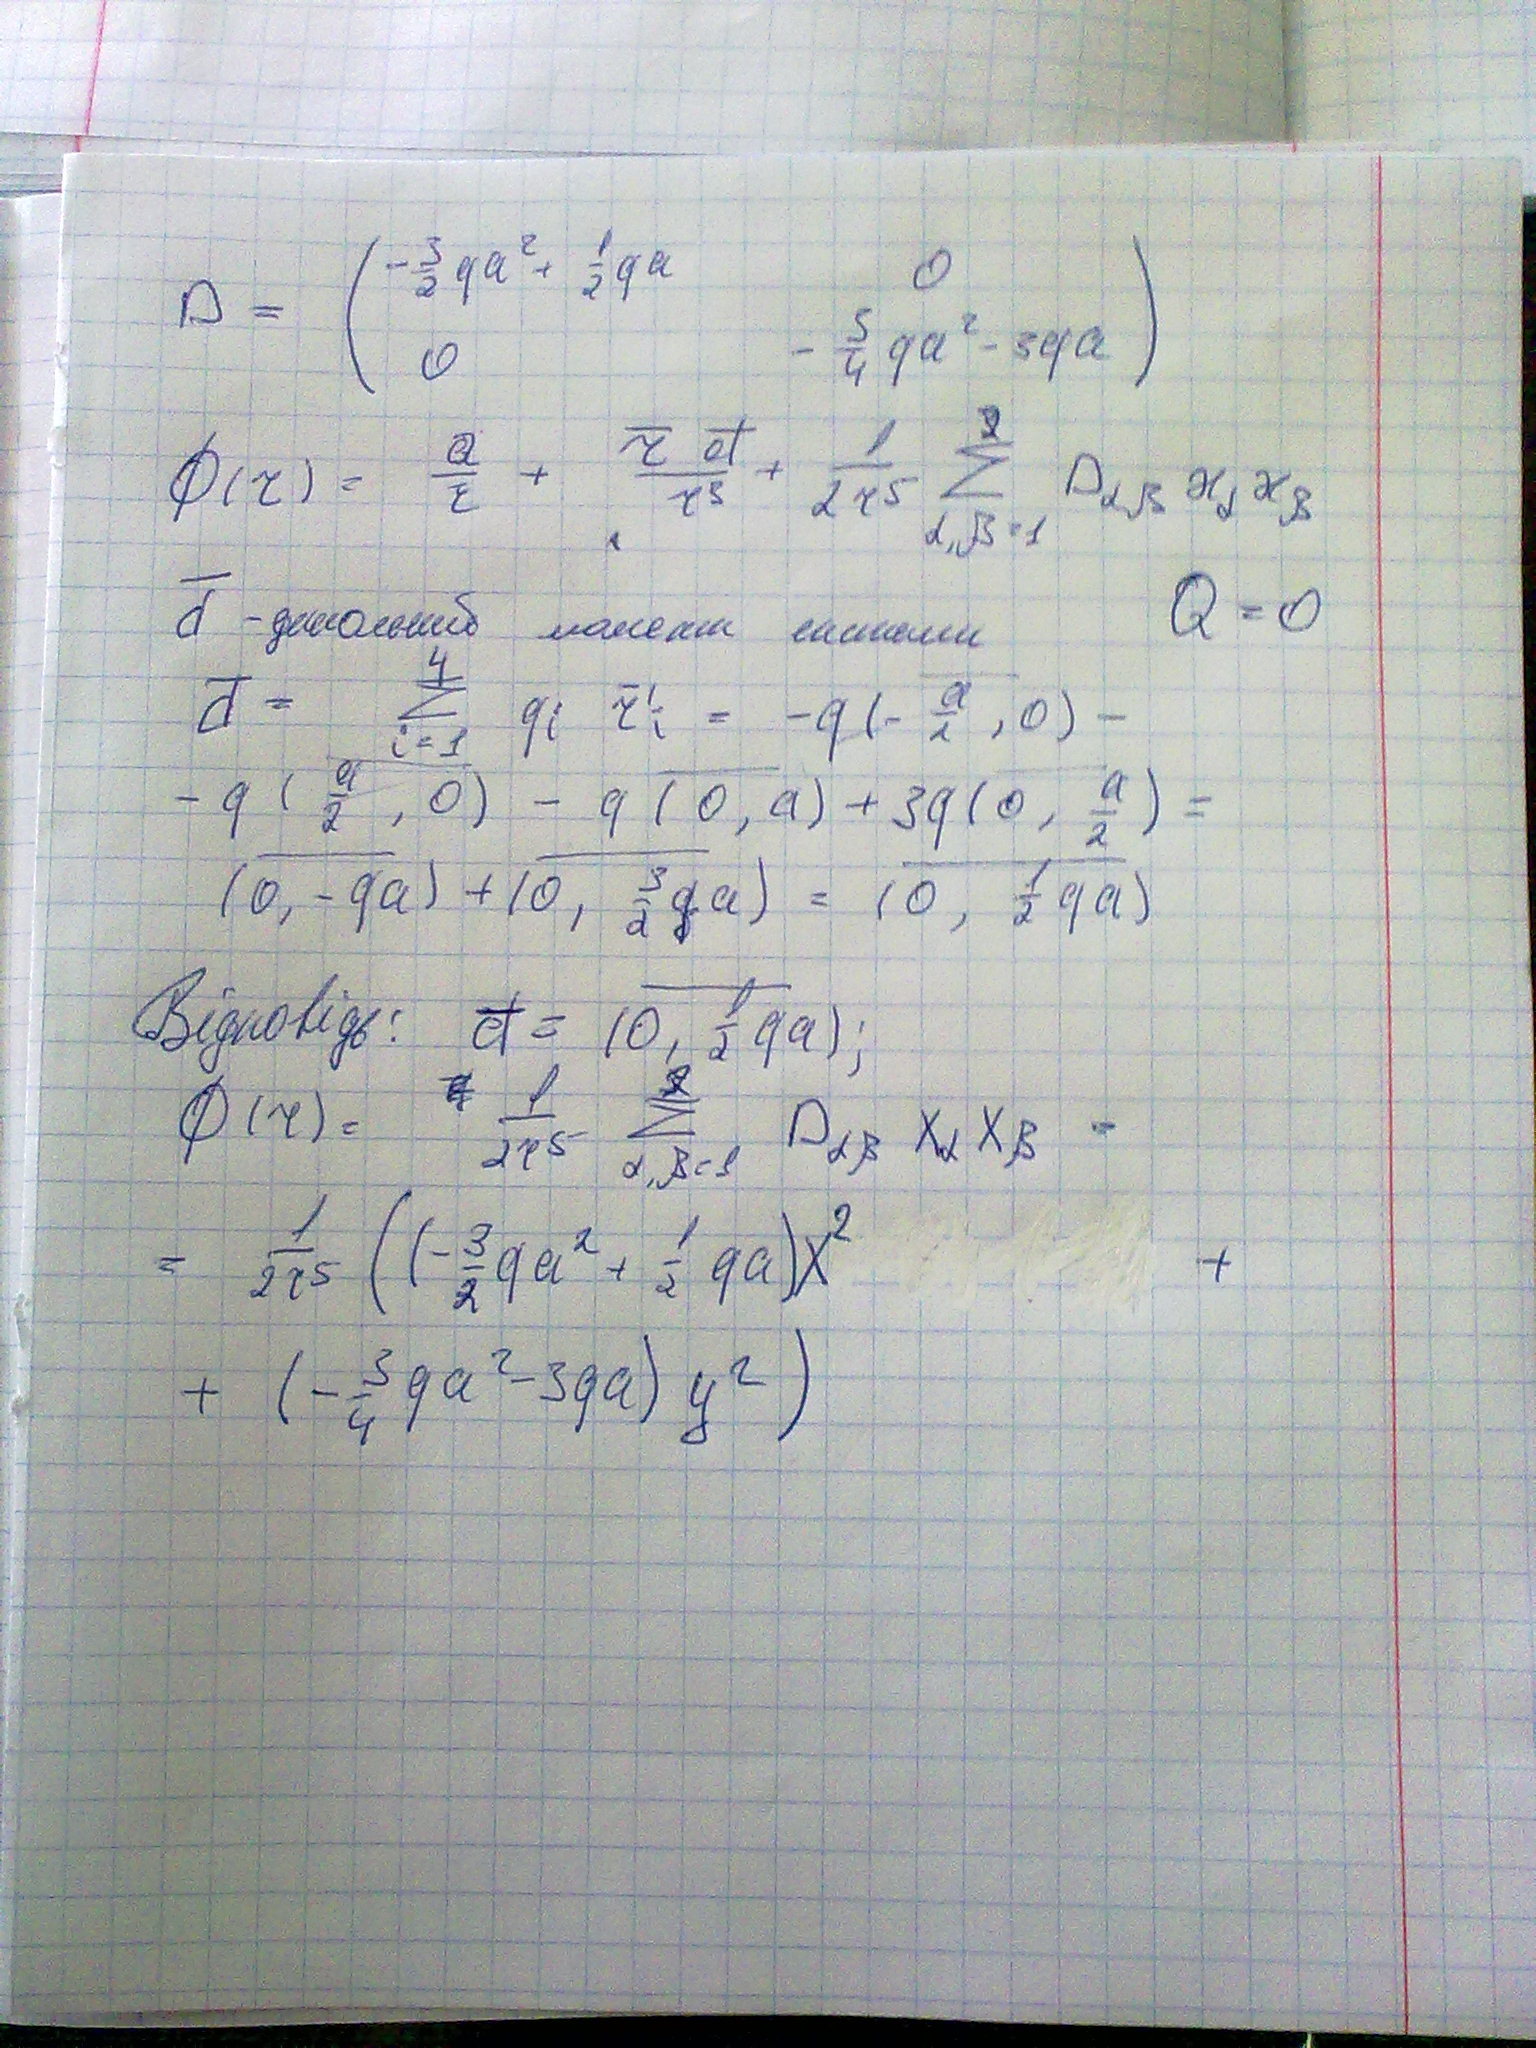 D = ( -3/2 qa² + 1/2 qa   0
0   - 3/4 qa² - 3qa )
φ(r) = Q/r + r̄ d̄/r³ + 1/2r⁵ Σ α,β=1 D αβ x α x β
d̄ - дипольний момент системи   Q = 0
d̄ = 4 Σ i=1 qᵢ r̄ᵢ' = -q(-a/2, 0) -
- q(a/2, 0) - q(0, a) + 3q(0, a/2) =
(0, -qa) + (0, 3/2 qa) = (0, 1/2 qa)
Відповідь: d̄ = (0, 1/2 qa);
φ(r) = 1/2r⁵ Σ α,β=1 D αβ X α X β =
= 1/2r⁵ ((-3/2 qa² + 1/2 qa)X² +
+ (-3/4 qa² - 3qa) y²)